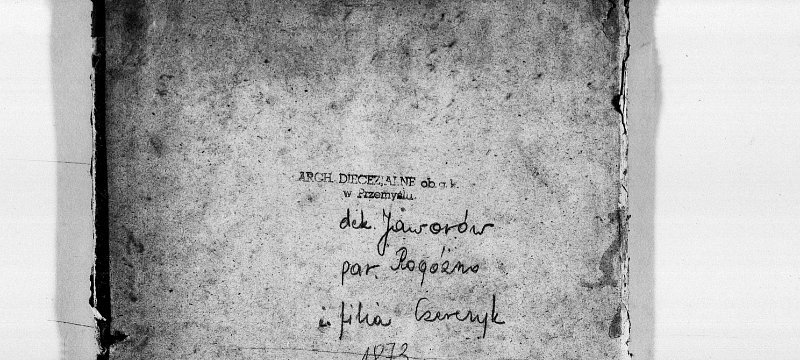 ARCH. DIECEZJALNE ob. g. k.
w Przemyślu.
dek. Jaworów
par. Rogóźno
i filia Czerczyk
1873